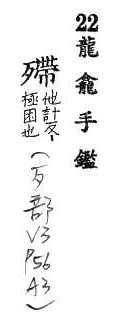 22龍龕手鑑
殢他計反
極困也
(歹部V3P56A3)